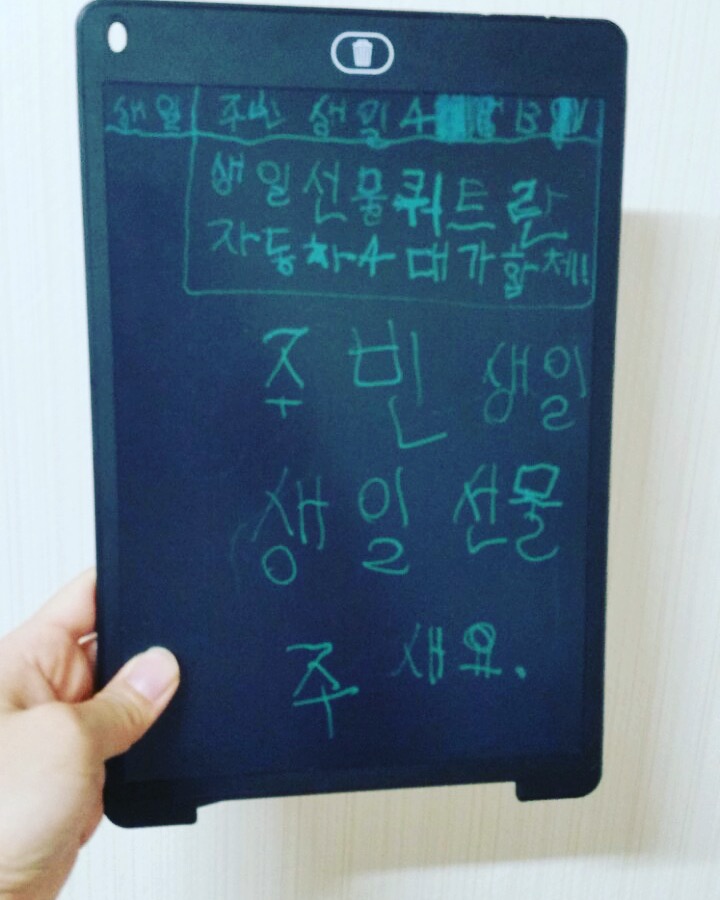 생일 주빈 생일 4 B
생일선물쿼트란
자동차4대가합체!
주빈 생일
생일 선물
주새요.